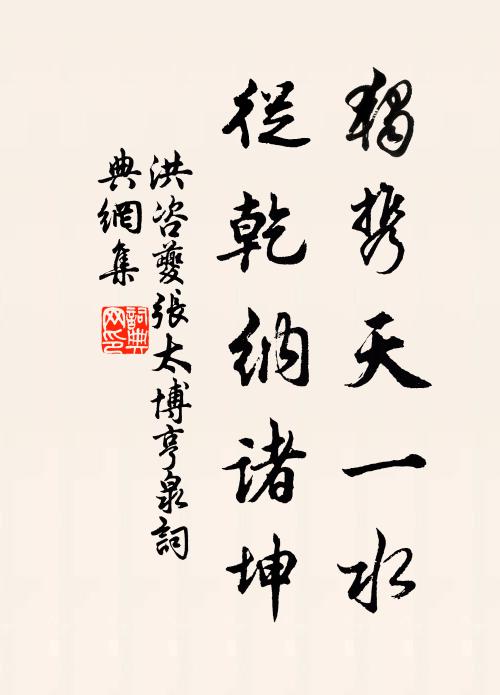 獨携天一水
從乾納諸坤
洪咨夔張太博亨泉詞
典網集
詞典
网印